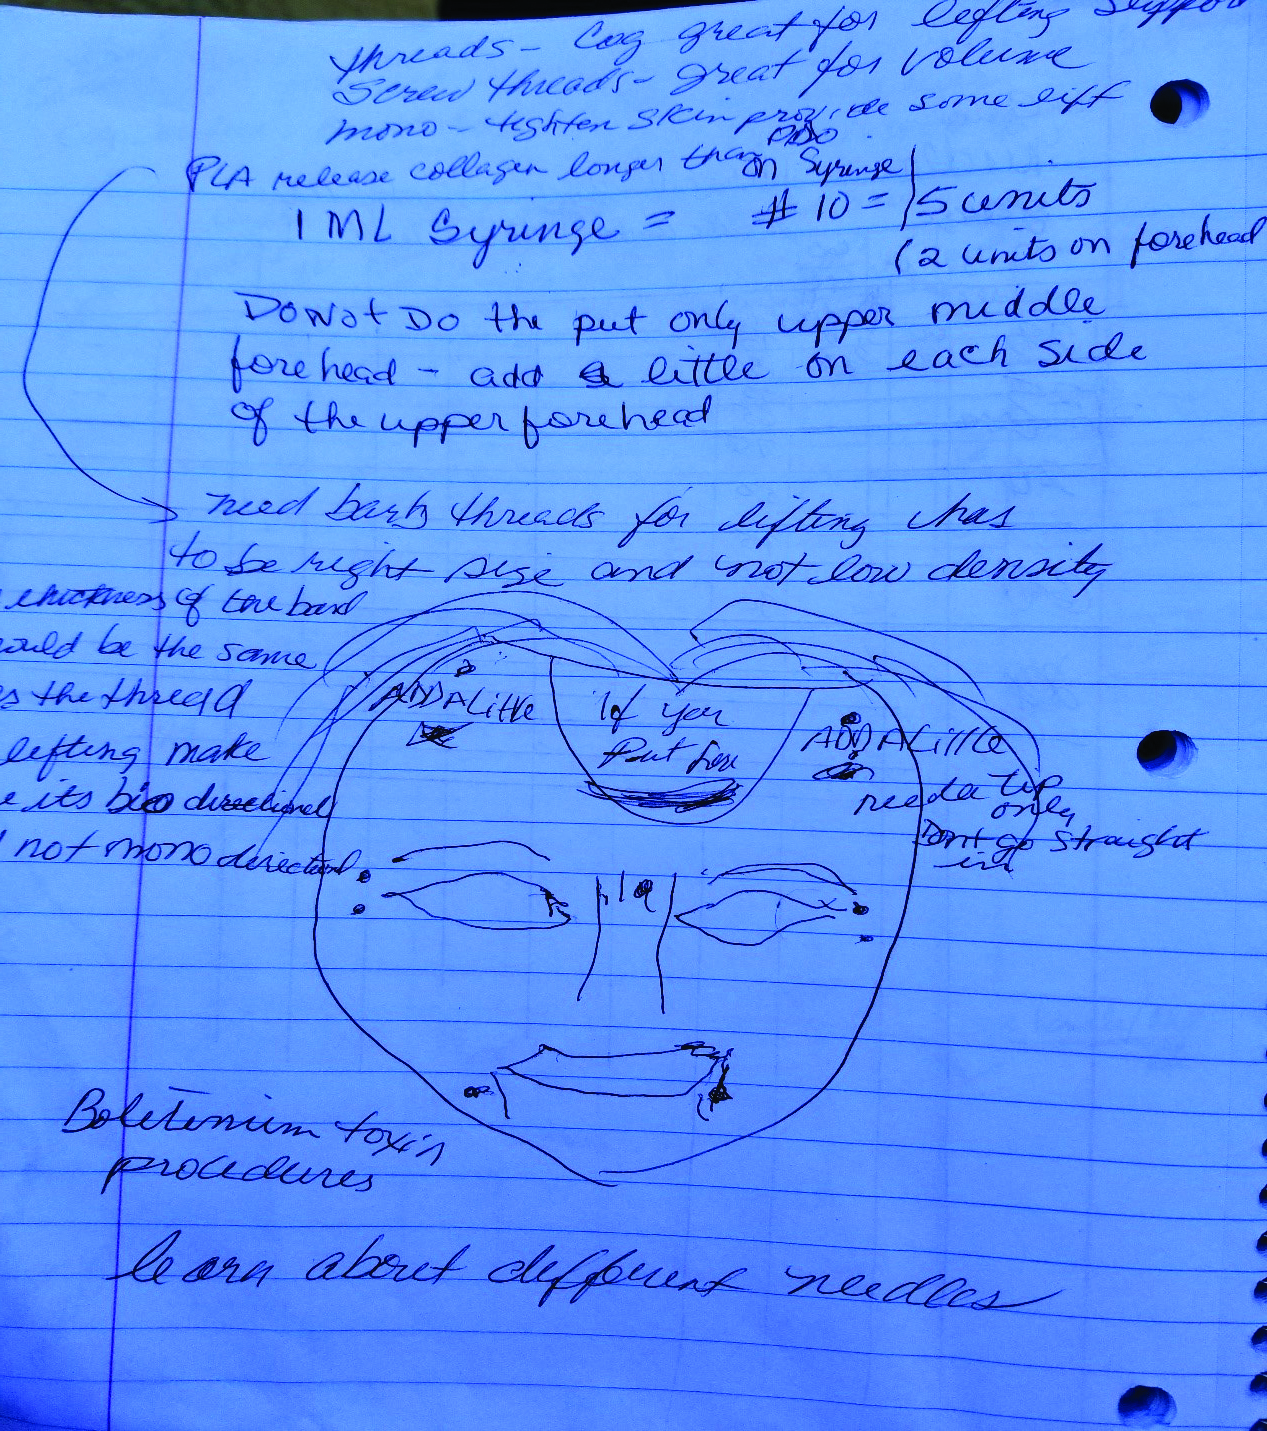 threads - Cog great for lifting support
Screw threads - great for volume
mono - tighten skin provide some lift
PLA release collagen longer than PDO
on Syringe
1 ML Syringe = # 10 = 5 units
(2 units on forehead
Do Not Do the put only upper middle
forehead - add a little on each side
of the upper forehead
need barb threads for lifting has
to be right size and not low density
thickness of the barb
ould be the same
s the thread
lifting make
e its bio directional
not mono directional
ADD A Little
If you
Put
ADD A Little
need a tip
only
Dont go straight
in
Boletenium toxin
procedures
learn about different needles